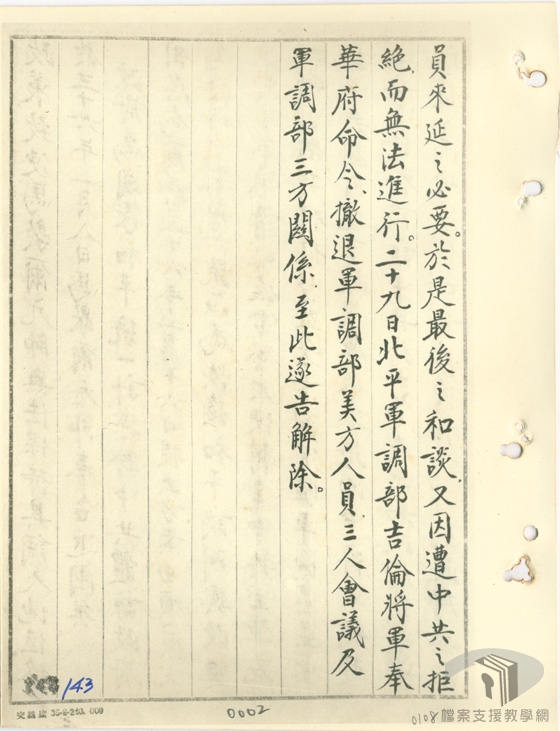 員來延之必要。於是最後之和談、又因遭中共之拒
絶、而無法進行。二十九日北平軍調部吉倫將軍奉
華府命令、撤退軍調部美方人員、三人會議及
軍調部三方關係、至此遂告解除。
143
0002
0108
檔案支援教學網